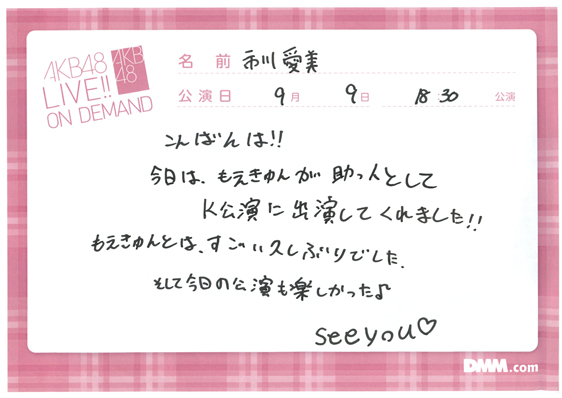 AKB48
LIVE!!
ON DEMAND
AKB
48
名前 市川愛美
公演日 9月 9日 18:30 公演
こんばんは!!
今日は、もえきゅんが助っ人として
K公演に出演してくれました!!
もえきゅんとは、すごい久しぶりでした.
そして今日の公演も楽しかった♪
seeyou♡
DMM.com